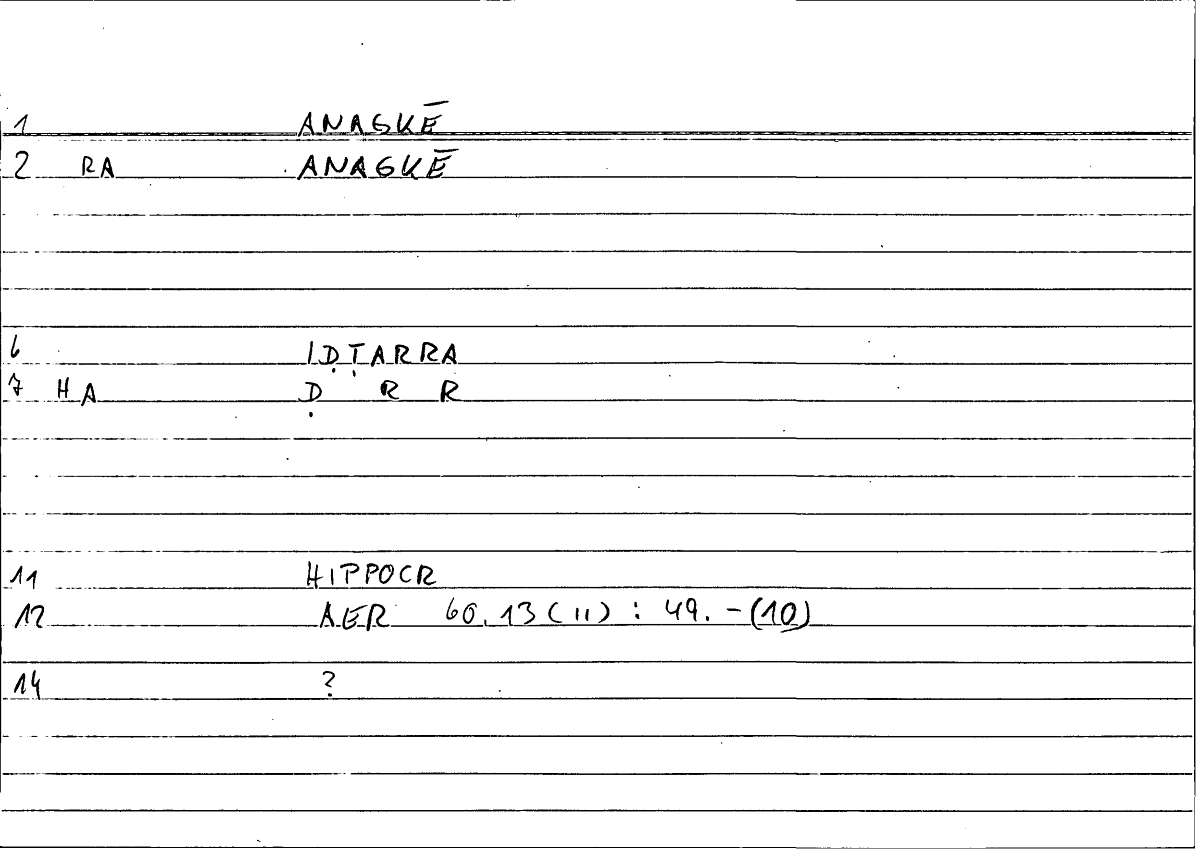 1 ANAGKĒ
2 RA ANAGKĒ
6 IḌṬARRA
7 HA Ḍ R R
11 HIPPOCR
12 AER 60.13(11) : 49.-(10)
14 ?